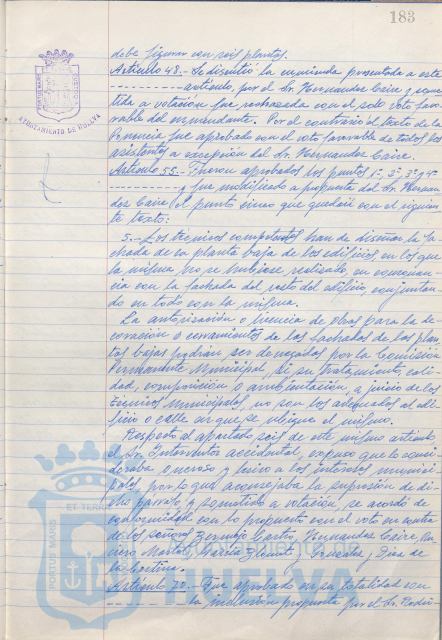 183
AYUNTAMIENTO DE HUELVA
debe figurar con seis plantas.
Artículo 48.- Se discutió la enmienda presentada a este
artículo, por el Sr. Hernandez Caire y some-
tida a votación fue rechazada con el solo voto favo-
rable del enmendante. Por el contrario el texto de la
Ponencia fue aprobado con el voto favorable de todos los
asistentes a excepción del Sr. Hernandez Caire.
Artículo 55.- Fueron aprobados los puntos 1º, 2º, 3º y 4º
y fue modificado a propuesta del Sr. Hernan-
dez Caire el punto cinco que quedará con el siguien-
te texto:
5.- Los técnicos competentes han de diseñar la fa-
chada de la planta baja de los edificios en los que
la misma no se hubiese realizado, en consonan-
cia con la fachada del resto del edificio conjuntan-
do en todo con la misma.
La autorización o licencia de obras para la de-
coración o cerramientos de las fachadas de las plan-
tas bajas podrán ser denegadas por la Comisión
Permanente Municipal, si su tratamiento, cali-
dad, composición o ambientación, a juicio de los
técnicos municipales, no son los adecuados al edi-
ficio o calle en que se ubique el mismo.
Respecto al apartado seis de este mismo artículo
el Sr. Interventor accidental, expuso que lo consi-
deraba oneroso y lesivo a los intereses munici-
pales por lo que aconsejaba la supresión de di-
cho párrafo y sometido a votación, se acordó de
conformidad con lo propuesto con el voto en contra
de los señores Bermejo Hernandez Caire, Ro-
mero Martín, García y Gonzalez y Diaz de
la Cortina.
Artículo Fue aprobado en su totalidad con
la inclusión propuesta por el Sr.
PORTUS MARIS ET TERRAE
HUELVA